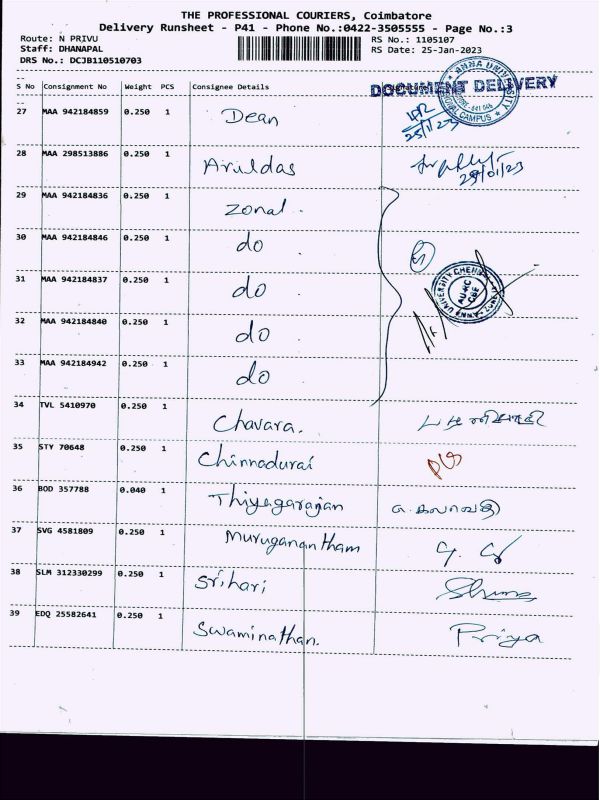 THE PROFESSIONAL COURIERS, Coimbatore
Delivery Runsheet - P41 - Phone No.:0422-3505555 - Page No.:3
Route: N PRIVU RS No.: 1105107
Staff: DHANAPAL RS Date: 25-Jan-2023
DRS No.: DCJB110510703
S No Consignment No Weight PCS Consignee Details
DOCUMENT DELIVERY
ANNA UNIVERSITY REGIONAL CAMPUS
27 MAA 942184859 0.250 1 Dean
28 MAA 298513886 0.250 1 Aruldas 25/01/23
29 MAA 942184836 0.250 1 Zonal.
30 MAA 942184846 0.250 1 do
31 MAA 942184837 0.250 1 do
32 MAA 942184840 0.250 1 do
33 MAA 942184942 0.250 1 do
34 TVL 5410970 0.250 1 Chavara.
35 STY 70648 0.250 1 Chinnadurai
36 BOD 357788 0.040 1 Thiyagarajan
37 SVG 4581809 0.250 1 Muruganantham
38 SLM 312330299 0.250 1 Srihari
39 EDQ 25582641 0.250 1 Swaminathan. Priya